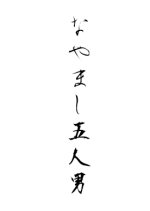 なやまし五人男